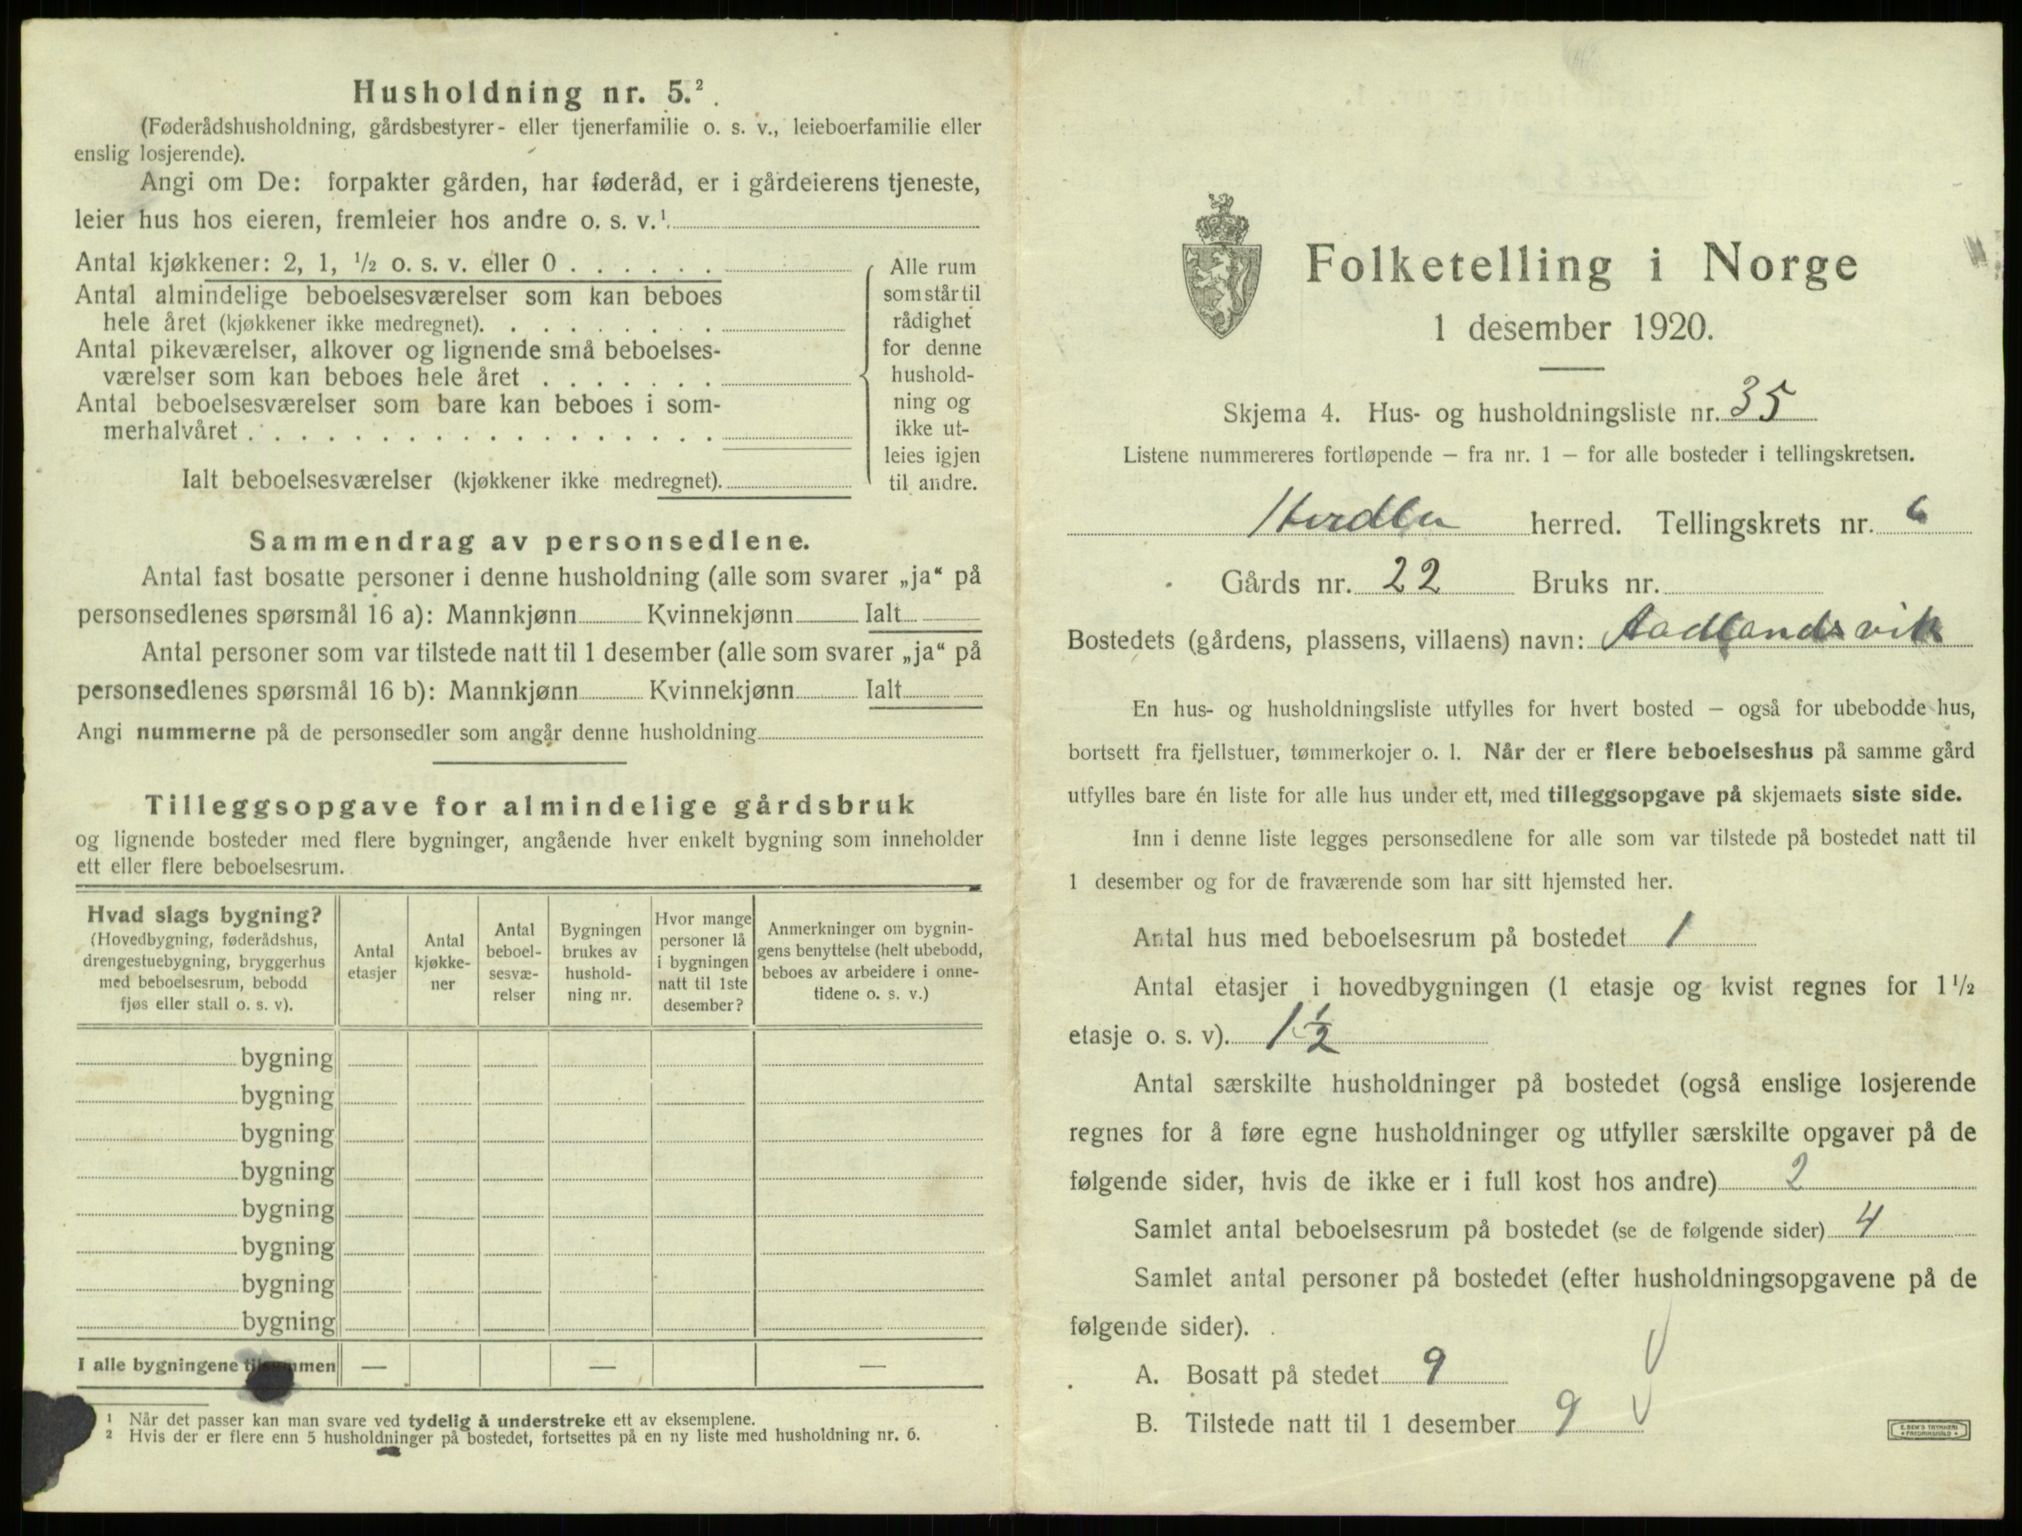 Husholdning nr. 5.²
(Føderådshusholdning, gårdsbestyrer- eller tjenerfamilie o. s. v., leieboerfamilie eller
enslig losjerende).
Angi om De: forpakter gården, har føderåd, er i gårdeierens tjeneste,
leier hus hos eieren, fremleier hos andre o. s. v.¹
Antal kjøkkener: 2, 1, ½ o. s. v. eller 0 . . . . . .
Antal almindelige beboelsesværelser som kan beboes
hele året (kjøkkener ikke medregnet). . . . . . . . .
Antal pikeværelser, alkover og lignende små beboelses-
værelser som kan beboes hele året . . . . . . .
Antal beboelsesværelser som bare kan beboes i som-
merhalvåret . . . . . . . . . . . . . . . . . .
Ialt beboelsesværelser (kjøkkener ikke medregnet).
Alle rum
som står til
rådighet
for denne
hushold-
ning og
ikke ut-
leies igjen
til andre.
Sammendrag av personsedlene.
Antal fast bosatte personer i denne husholdning (alle som svarer „ja“ på
personsedlenes spørsmål 16 a): Mannkjønn Kvinnekjønn Ialt
Antal personer som var tilstede natt til 1 desember (alle som svarer „ja“ på
personsedlenes spørsmål 16 b): Mannkjønn Kvinnekjønn Ialt
Angi nummerne på de personsedler som angår denne husholdning
Tilleggsopgave for almindelige gårdsbruk
og lignende bosteder med flere bygninger, angående hver enkelt bygning som inneholder
ett eller flere beboelsesrum.
Hvad slags bygning?
(Hovedbygning, føderådshus,
drengestuebygning, bryggerhus
med beboelsesrum, bebodd
fjøs eller stall o. s. v).
Antal
etasjer
Antal
kjøkke-
ner
Antal
beboel-
sesvæ-
relser
Bygningen
brukes av
hushold-
ning nr.
Hvor mange
personer lå
i bygningen
natt til 1ste
desember?
Anmerkninger om bygnin-
gens benyttelse (helt ubebodd,
beboes av arbeidere i onne-
tidene o. s. v.)
bygning
bygning
bygning
bygning
bygning
bygning
bygning
bygning
I alle bygningene tilsammen — — —
¹ Når det passer kan man svare ved tydelig å understreke ett av eksemplene.
² Hvis der er flere enn 5 husholdninger på bostedet, fortsettes på en ny liste med husholdning nr. 6.
Folketelling i Norge
1 desember 1920.
Skjema 4. Hus- og husholdningsliste nr. 35
Listene nummereres fortløpende – fra nr. 1 – for alle bosteder i tellingskretsen.
Herdla herred. Tellingskrets nr. 6
Gårds nr. 22 Bruks nr.
Bostedets (gårdens, plassens, villaens) navn: Aadlandsvik
En hus- og husholdningsliste utfylles for hvert bosted – også for ubebodde hus,
bortsett fra fjellstuer, tømmerkojer o. l. Når der er flere beboelseshus på samme gård
utfylles bare én liste for alle hus under ett, med tilleggsopgave på skjemaets siste side.
Inn i denne liste legges personsedlene for alle som var tilstede på bostedet natt til
1 desember og for de fraværende som har sitt hjemsted her.
Antal hus med beboelsesrum på bostedet 1
Antal etasjer i hovedbygningen (1 etasje og kvist regnes for 1½
etasje o. s. v). 1½
Antal særskilte husholdninger på bostedet (også enslige losjerende
regnes for å føre egne husholdninger og utfyller særskilte opgaver på de
følgende sider, hvis de ikke er i full kost hos andre) 2
Samlet antal beboelsesrum på bostedet (se de følgende sider) 4
Samlet antal personer på bostedet (efter husholdningsopgavene på de
følgende sider).
A. Bosatt på stedet 9
B. Tilstede natt til 1 desember 9